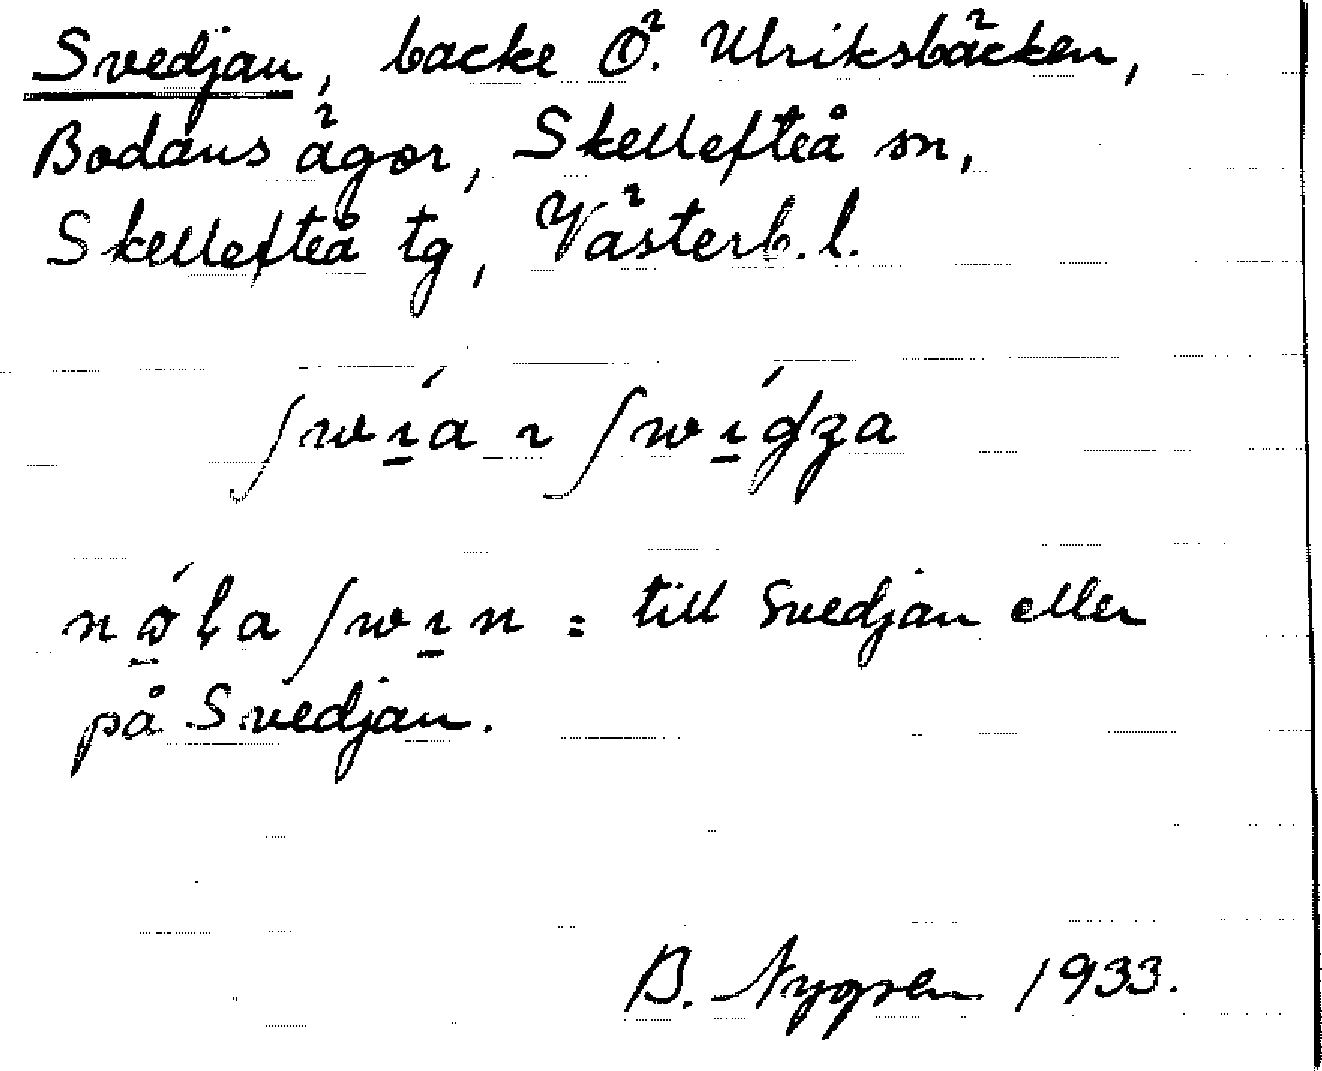 Svedjan, backe Ö. Ulriksbäcken,
Bodans ägor, Skellefteå sn,
Skellefteå tg, Västerb. l.
ʃwı̱́a ı ʃwı̱́dʒa
ʃwı̱n = till Svedjan eller
på Svedjan.
B. Nygren 1933.